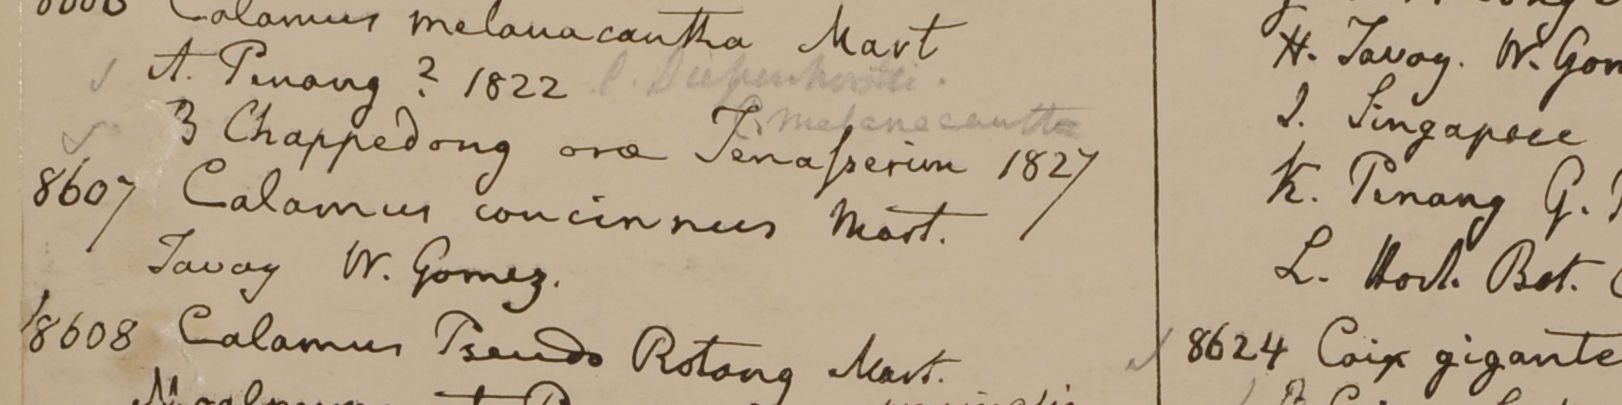 8606 Calamus melanacantha Mart
A. Penang ? 1822
C. melanacantha
B Chappedong oræ Tenasserim 1827
8607 Calamus concinnus Mart.
Tavoy W. Gomez.
8608 Calamus Pseudo Rotang Mart.
H. Tavoy. W. Gom
I. Singapore
K. Penang G.
L. Hort. Bot. C
8624 Coix gigante